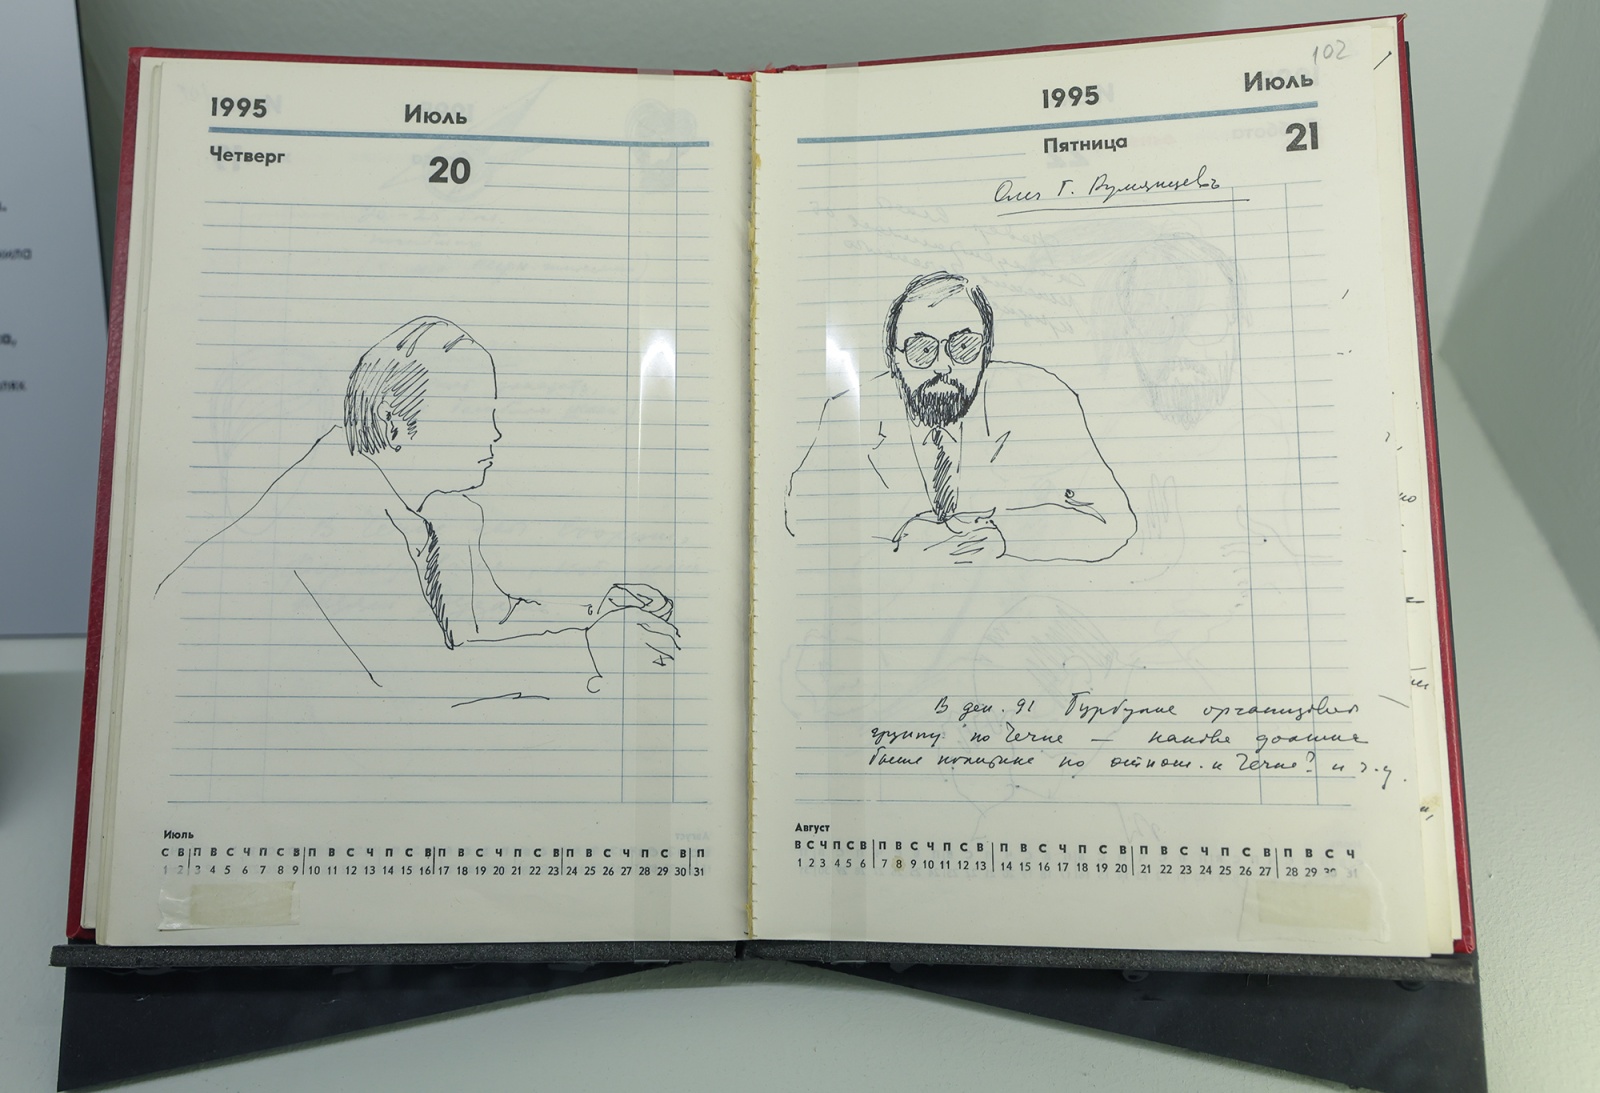 1995 Июль
Четверг 20
Июль
С В П В С Ч П С В П В С Ч П С В П В С Ч П С В П В С Ч П С В П
1 2 3 4 5 6 7 8 9 10 11 12 13 14 15 16 17 18 19 20 21 22 23 24 25 26 27 28 29 30 31
102
1995 Июль
Пятница 21
Олег Г. Румянцевъ
В дек. 91 Бурбулис организовал
группу по Чечне — какова должна
быть политика по отнош. к Чечне? и т.д.
Август
В С Ч П С В П В С Ч П С В П В С Ч П С В П В С Ч П С В П В С Ч
1 2 3 4 5 6 7 8 9 10 11 12 13 14 15 16 17 18 19 20 21 22 23 24 25 26 27 28 29 30 31